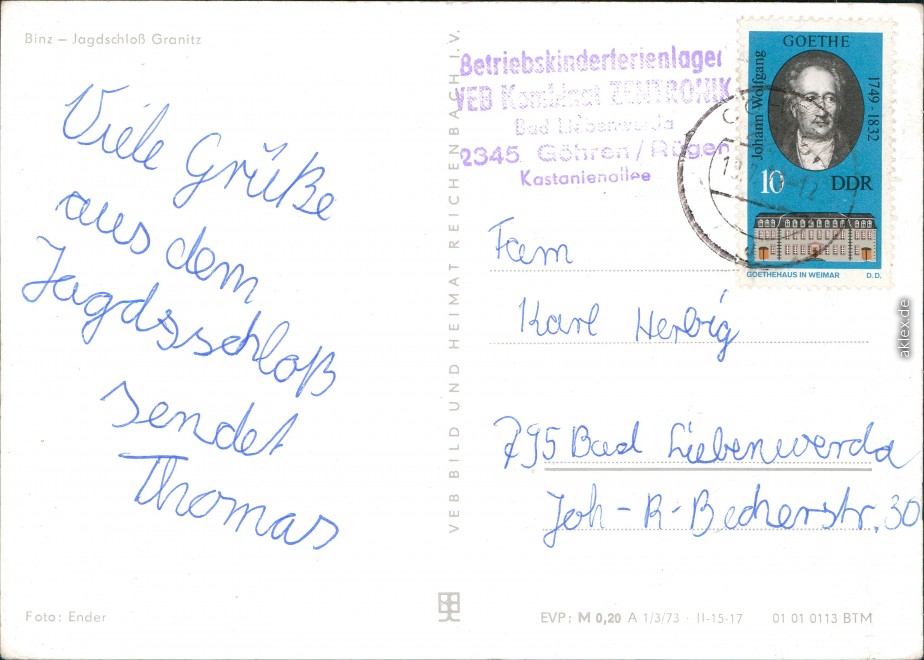 Binz – Jagdschloß Granitz
Viele Grüße
aus dem
Jagdsschloß
sendet
Thomas
Foto: Ender
VEB BILD UND HEIMAT REICHENBACH I.V.
Betriebskinderferienlager
VEB Kombinat ZENTRONIK
Bad Liebenwerda
2345 Göhren / Rügen
Kastanienallee
GOETHE
Johann Wolfgang
1749 - 1832
10 DDR
GOETHEHAUS IN WEIMAR D.D.
Fam
Karl Herbig
795 Bad Liebenwerda
Joh-R-Becherstr. 30
EVP: M 0,20 A 1/3/73 · II-15-17 01 01 0113 BTM
aklex.de